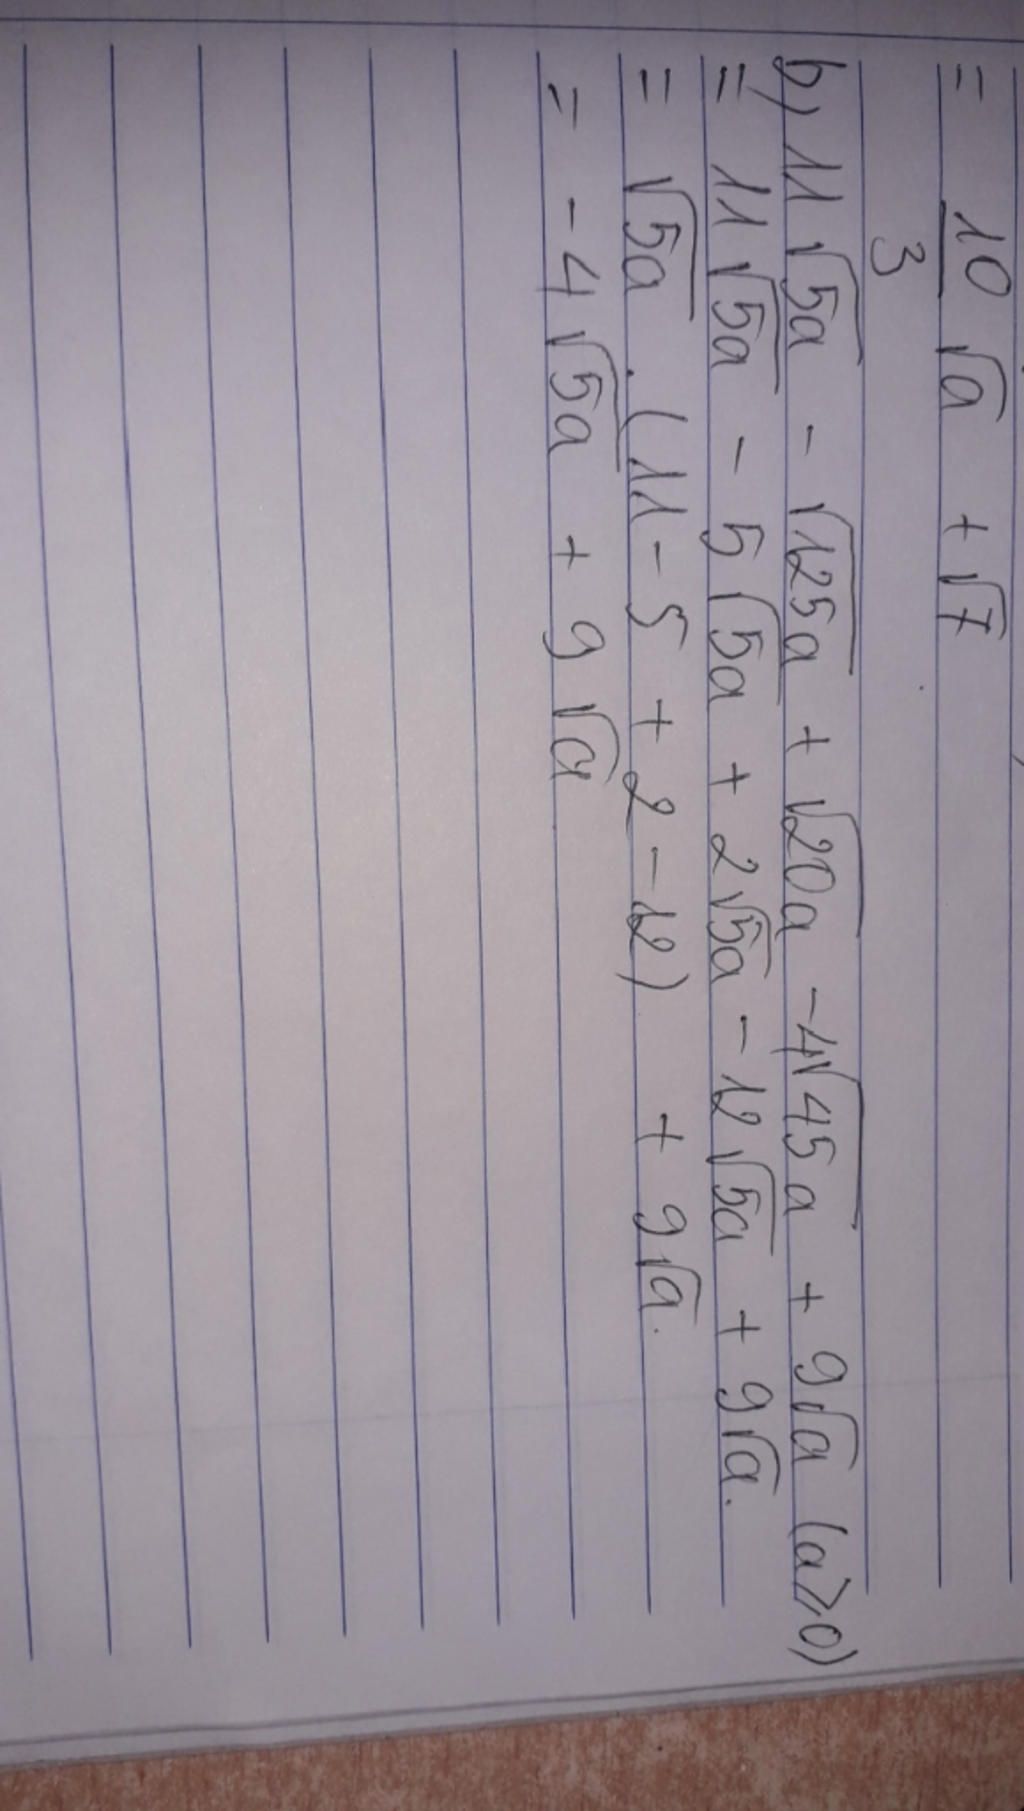 = 10/3 √a + √7
b, 11√5a - √125a + √20a - 4√45a + 9√a (a≥0)
= 11√5a - 5√5a + 2√5a - 12√5a + 9√a.
= √5a . (11 - 5 + 2 - 12) + 9√a.
= -4√5a + 9√a